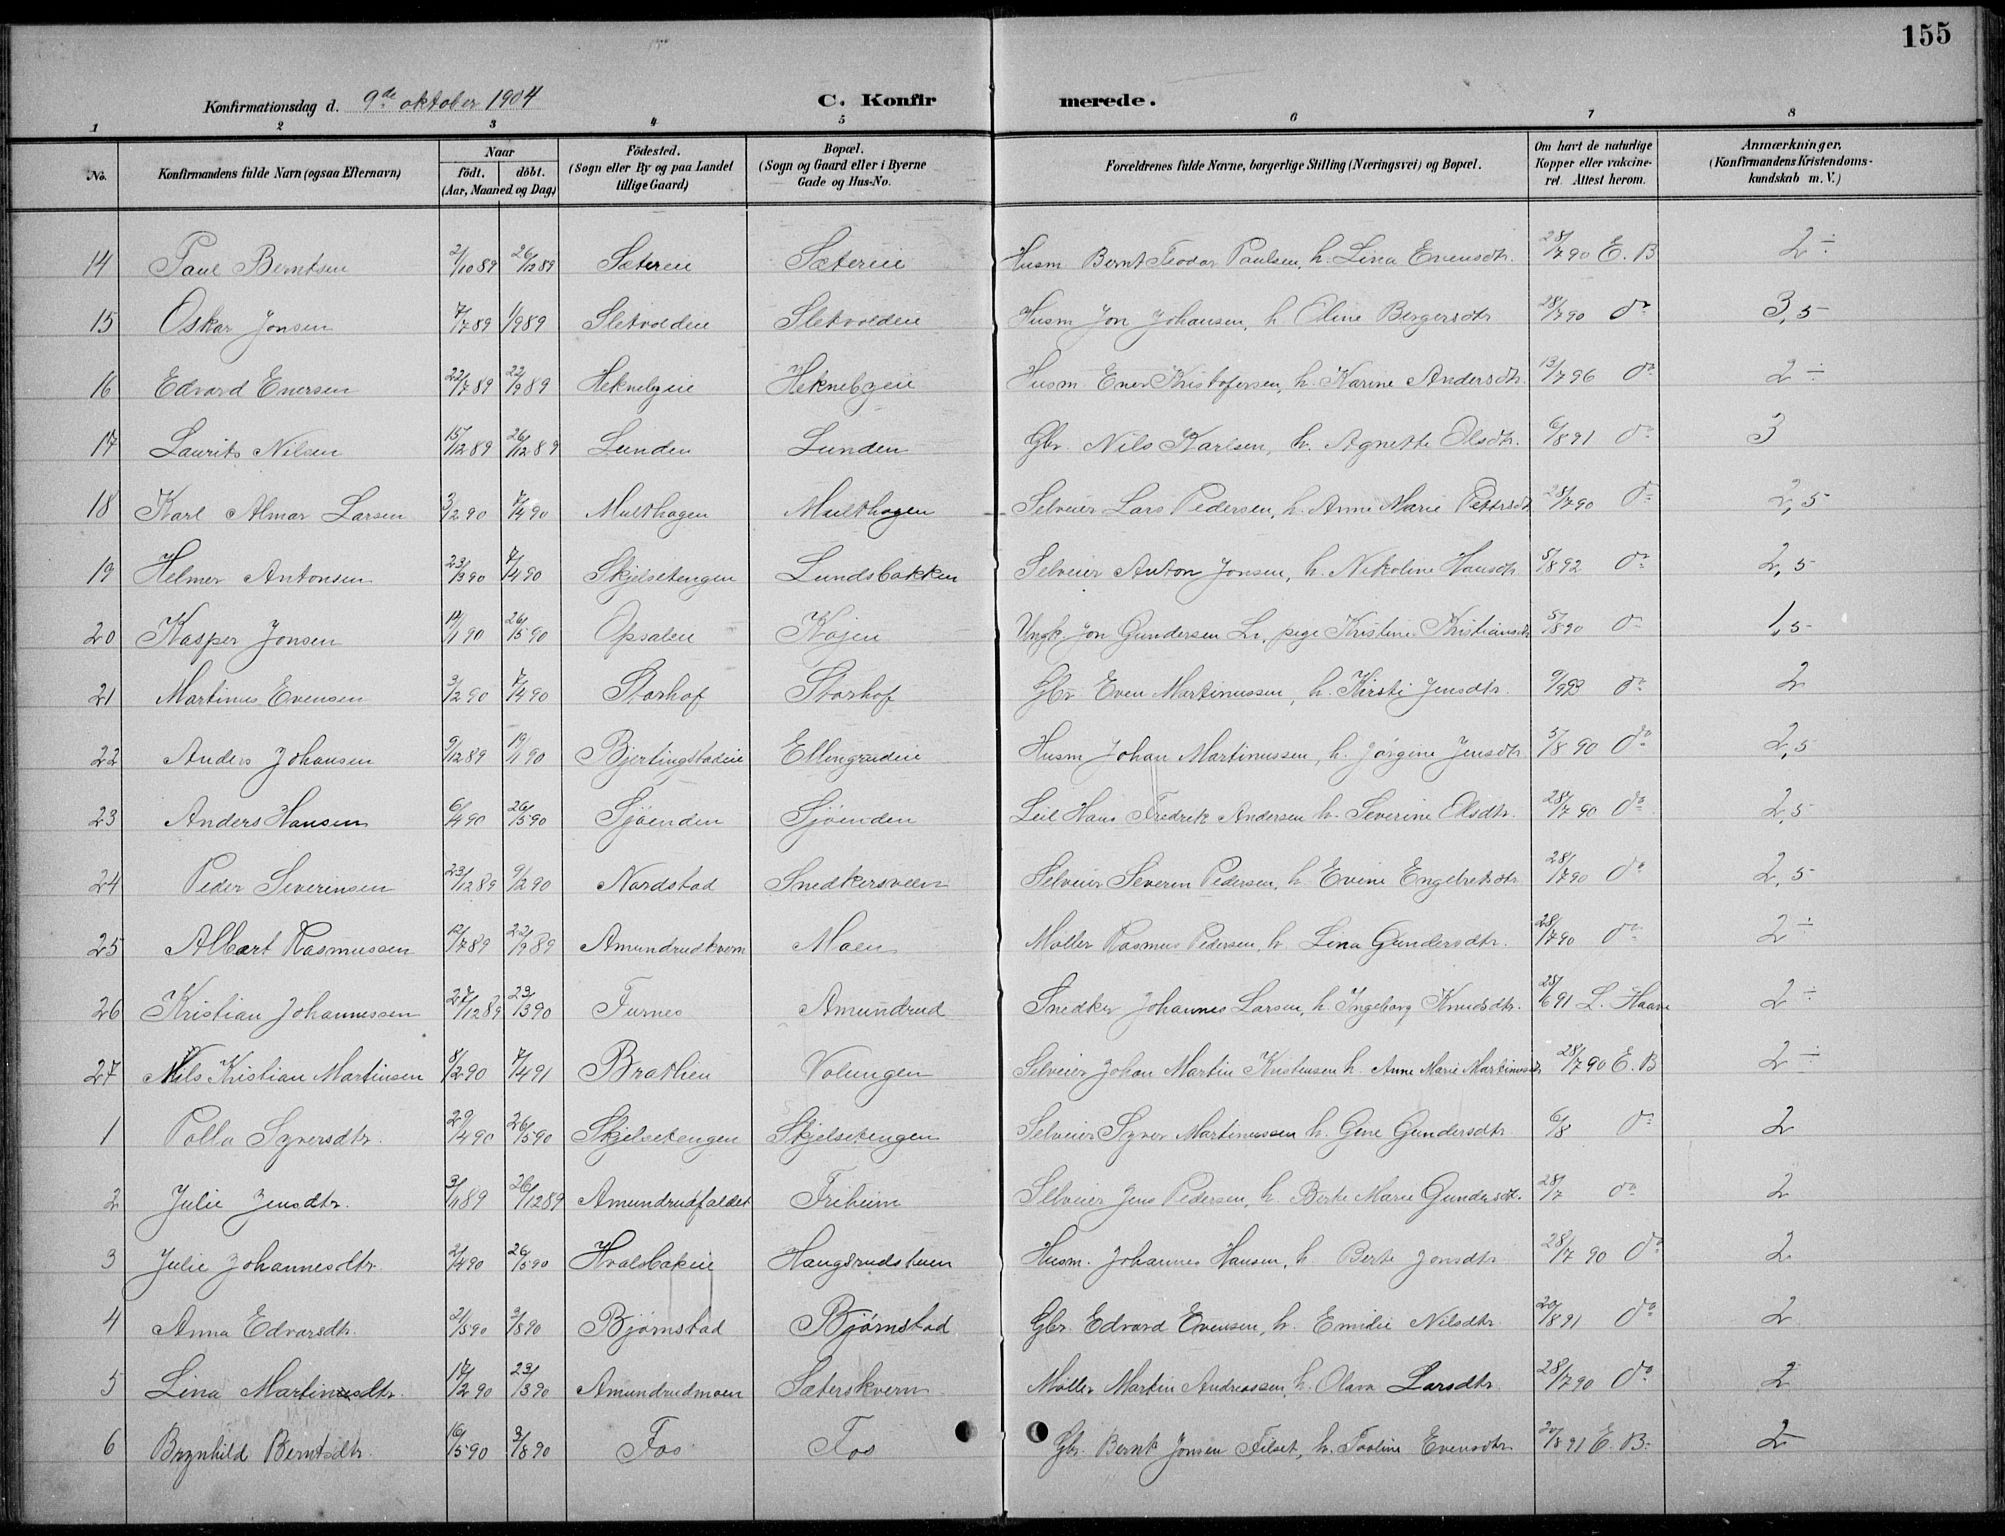 155
Konfirmationsdag d. 9de oktober 1904 C. Konfirmerede.
1 2 3 4 5 6 7 8
No. Konfirmandens fulde Navn (ogsaa Efternavn) Naar födt. döbt. (Aar, Maaned og Dag) Födested. (Sogn eller By og paa Landet tillige Gaard) Bopæl. (Sogn og Gaard eller i Byerne Gade og Hus-No. Forældrenes fulde Navne, borgerlige Stilling (Næringsvei) og Bopæl. Om havt de naturlige Kopper eller vakcineret. Attest herom. Anmærkninger. (Konfirmandens Kristendomskundskab m. V.)
14 Paul Berntsen 2/10 89 26/12 89 Sætereie Sætereie Husm Bernt Teodor Paulsen, h. Lina Evensdtr. 28/7 90 E. B 2 ÷
15 Oskar Jonsen 7/7 89 1/9 89 Sletvoldeie Sletvoldeie Husm Jon Johansen, h Oline Bergersdtr 28/7 90 do 3,5
16 Edvard Enersen 22/7 89 22/9 89 Heknebyeie Heknebyeie Husm. Ener Kristofersen, h. Karine Andersdtr. 13/7 96 do 2 ÷
17 Laurits Nilsen 15/12 89 26/12 89 Lunden Lunden Gbr. Nils Karlsen, h. Agnette Olsdtr. 6/8 91 do 3
18 Karl Almar Larsen 3/2 90 7/4 90 Multhagen Multhagen Selveier Lars Pedersen, h. Anne Marie Pettersdt 28/7 90 do 2,5
19 Helmer Antonsen 23/3 90 7/4 90 Skjelsetengen Lundsbakken Selveier Anton Jonsen, h. Nikoline Hansdtr 5/8 92 do 2,5
20 Kasper Jonsen 14/1 90 26/5 90 Opsaleie Kojen Ungk. Jon Gundersen L., pige Kristine Kristiansdtr 5/8 90 do 1,5
21 Martinus Evensen 3/2 90 7/4 90 Storhof Storhof Gbr. Even Martinussen, h. Kirsti Jensdtr. 9/9 93 do 2
22 Anders Johansen 9/12 89 19/1 90 Bjertingstadeie Ellengradeie Husm Johan Martinussen, h. Jørgine Jensdtr 5/8 90 do 2,5
23 Anders Hansen 6/4 90 26/5 90 Sjøenden Sjøenden Leil Hans Fredrik Andersen h. Severine Olsdtr. 28/7 90 do 2,5
24 Peder Severinsen 23/12 89 9/2 90 Nordstad Snedkersveen Selveier Severin Pedersen, h. Evine Engebretsdtr 28/7 90 do 2,5
25 Albert Rasmussen 12/7 89 22/9 89 Amundrudkvern Moen Møller Rasmus Pedersen, h. Lina Gundersdtr. 28/7 90 do 2 ÷
26 Kristian Johannessen 27/12 89 23/3 90 Furnes Amundrud Snedker Johannes Larsen, h. Ingeborg Knudsdtr. 25/6 91 L. Haave 2 ÷
27 Nils Kristian Martinsen 8/2 90 7/4 91 Brathen Volungen Selveier Johan Martin Kristensen h. Anne Marie Martinusdtr 28/7 90 E. B 2 ÷
1 Polla Syversdtr. 29/4 90 26/5 90 Skjelsetengen Skjelsetengen Selveier Syver Martinussen h. Gine Gundersdtr. 6/8 do 2
2 Julie Jensdtr. 3/11 89 26/12 89 Amundrudfaldet Friheim Selveier Jens Pedersen, h. Berte Marie Gundersdt. 28/7 do 2
3 Julie Johannesdtr. 2/4 90 26/5 90 Hvalsbakeie Haugsrudstuen Husm. Johannes Hansen, h. Berte Jonsdtr 28/7 90 do 2
4 Anna Edvarsdtr. 2/5 90 3/8 90 Bjørnstad Bjørnstad Gbr. Edvard Evensen, h. Emilie Nilsdtr. 20/8 91 do 2
5 Lina Martinusdtr. 17/2 90 23/3 90 Amundrudmoen Sæterskvern Møller Martin Andreassen, h. Olava Larsdtr. 28/7 90 do 2
6 Brynhild Berntsdtr. 16/5 90 3/8 90 Fos Fos Gbr. Bernt Jonsen Filset, h. Torline Evensdtr. 20/8 91 E. B. 2